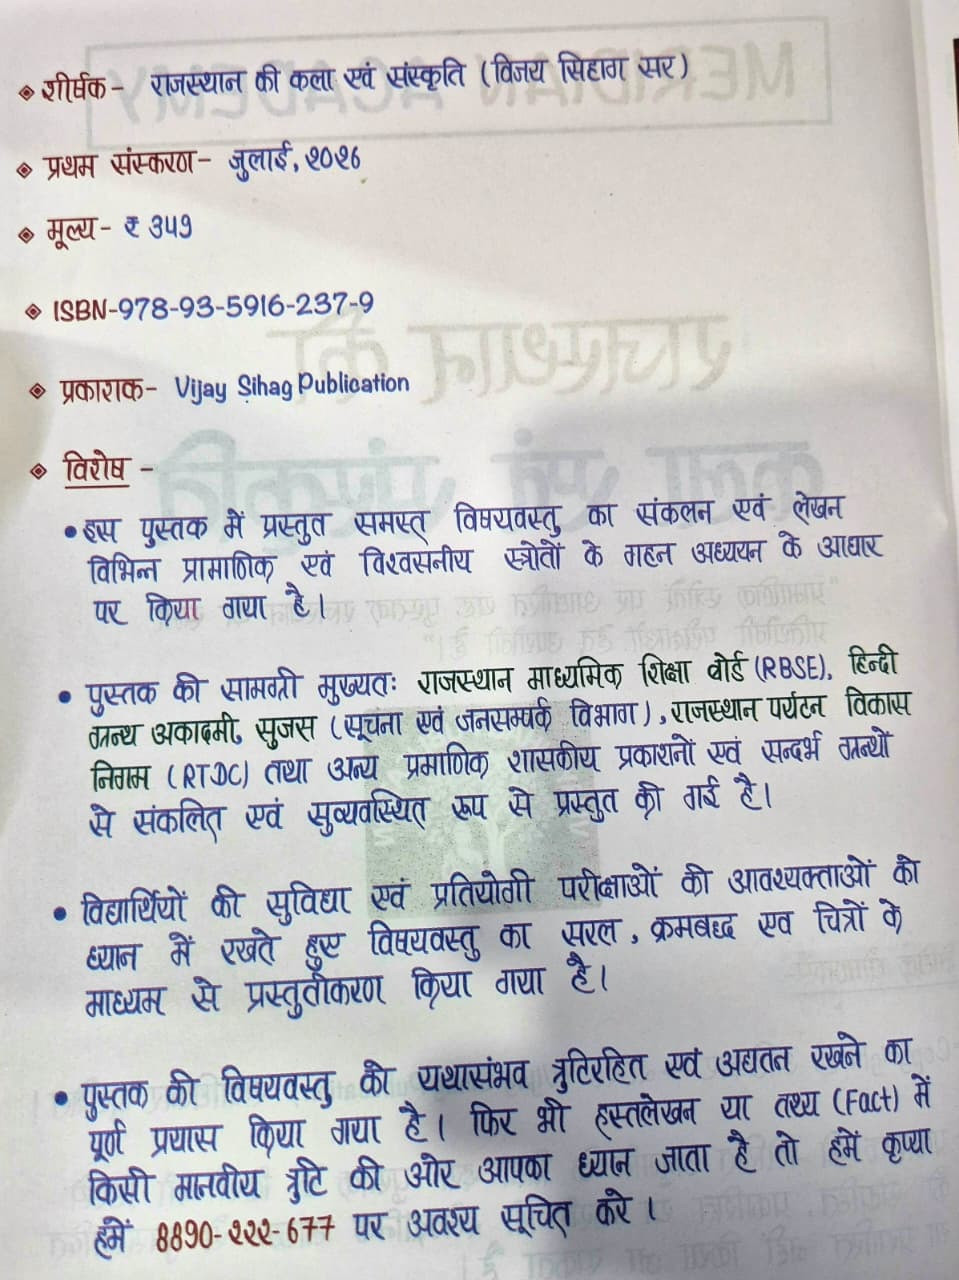 शीर्षक- राजस्थान की कला एवं संस्कृति (विजय सिहाग सर)
प्रथम संस्करण- जुलाई, २०२६
मूल्य- ₹ ३४९
ISBN-978-93-5916-237-9
प्रकाशक- Vijay Sihag Publication
विशेष -
• इस पुस्तक में प्रस्तुत समस्त विषयवस्तु का संकलन एवं लेखन
विभिन्न प्रामाणिक एवं विश्वसनीय स्त्रोतों के गहन अध्ययन के आधार
पर किया गया है।
• पुस्तक की सामग्री मुख्यतः राजस्थान माध्यमिक शिक्षा बोर्ड (RBSE), हिन्दी
ग्रन्थ अकादमी, सुजस (सूचना एवं जनसम्पर्क विभाग), राजस्थान पर्यटन विकास
निगम (RTDC) तथा अन्य प्रमाणिक शासकीय प्रकाशनों एवं सन्दर्भ ग्रन्थों
से संकलित एवं सुव्यवस्थित रूप से प्रस्तुत की गई है।
• विद्यार्थियों की सुविधा एवं प्रतियोगी परीक्षाओं की आवश्यक्ताओं को
ध्यान में रखते हुए विषयवस्तु का सरल, क्रमबद्ध एव चित्रों के
माध्यम से प्रस्तुतीकरण किया गया है।
• पुस्तक की विषयवस्तु को यथासंभव त्रुटिरहित एवं अद्यतन रखने का
पूर्ण प्रयास किया गया है। फिर भी हस्तलेखन या तथ्य (Fact) में
किसी मानवीय त्रुटि की ओर आपका ध्यान जाता है तो हमें कृप्या
हमें 8890-२२२-677 पर अवश्य सूचित करे।